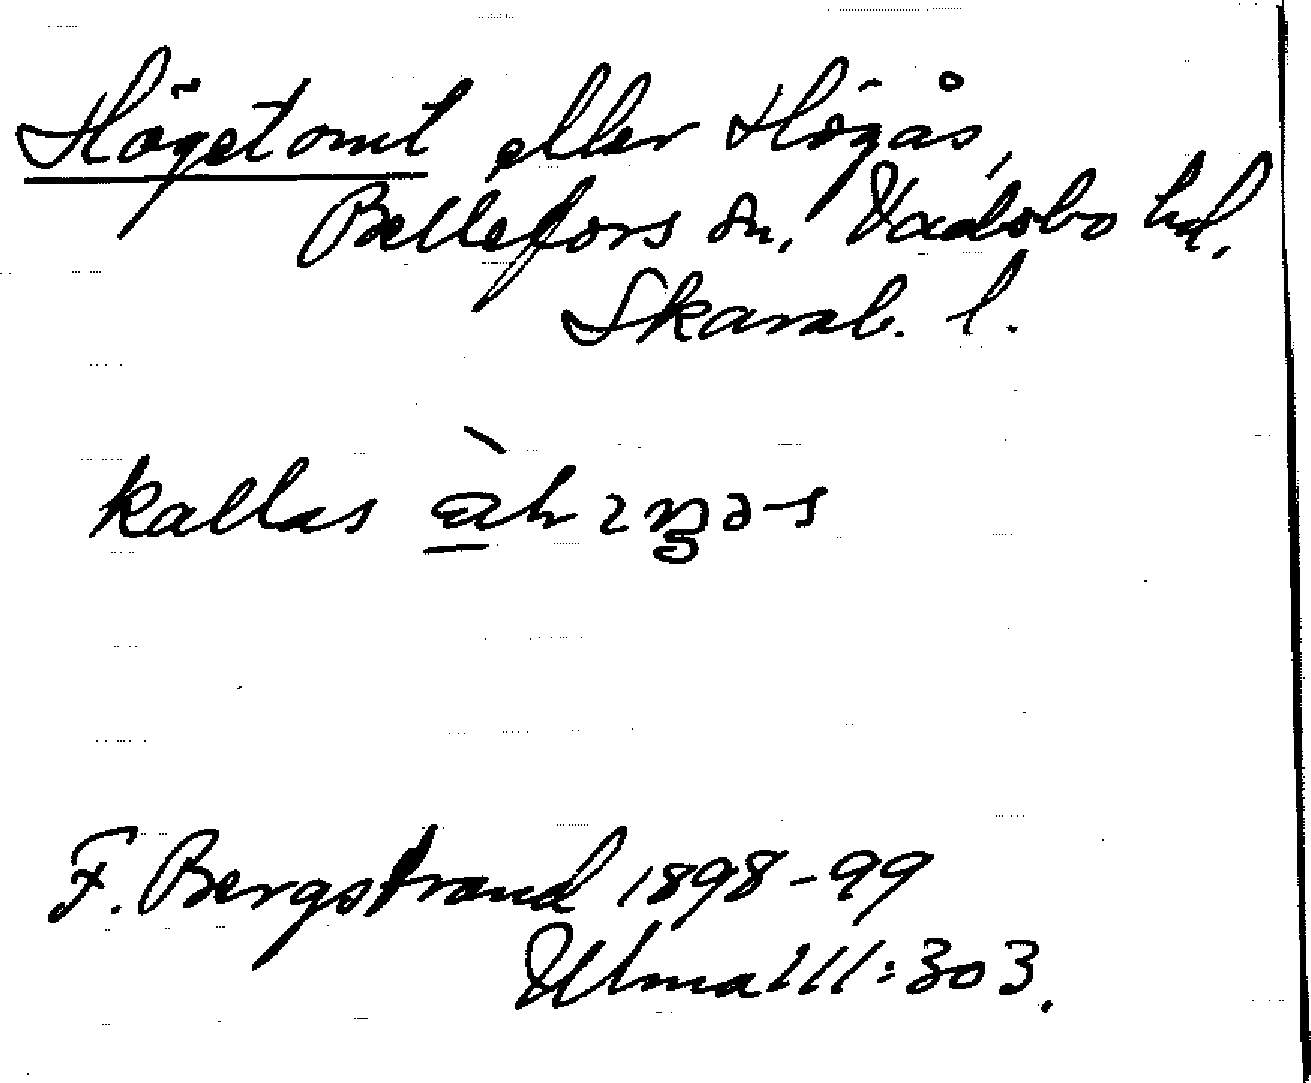 Högetomt eller Högås,
Bellefors sn, Vadsbo hd,
Skarab. l.
kallas
F. Bergstrand 1898-99
Ulma 111:303.